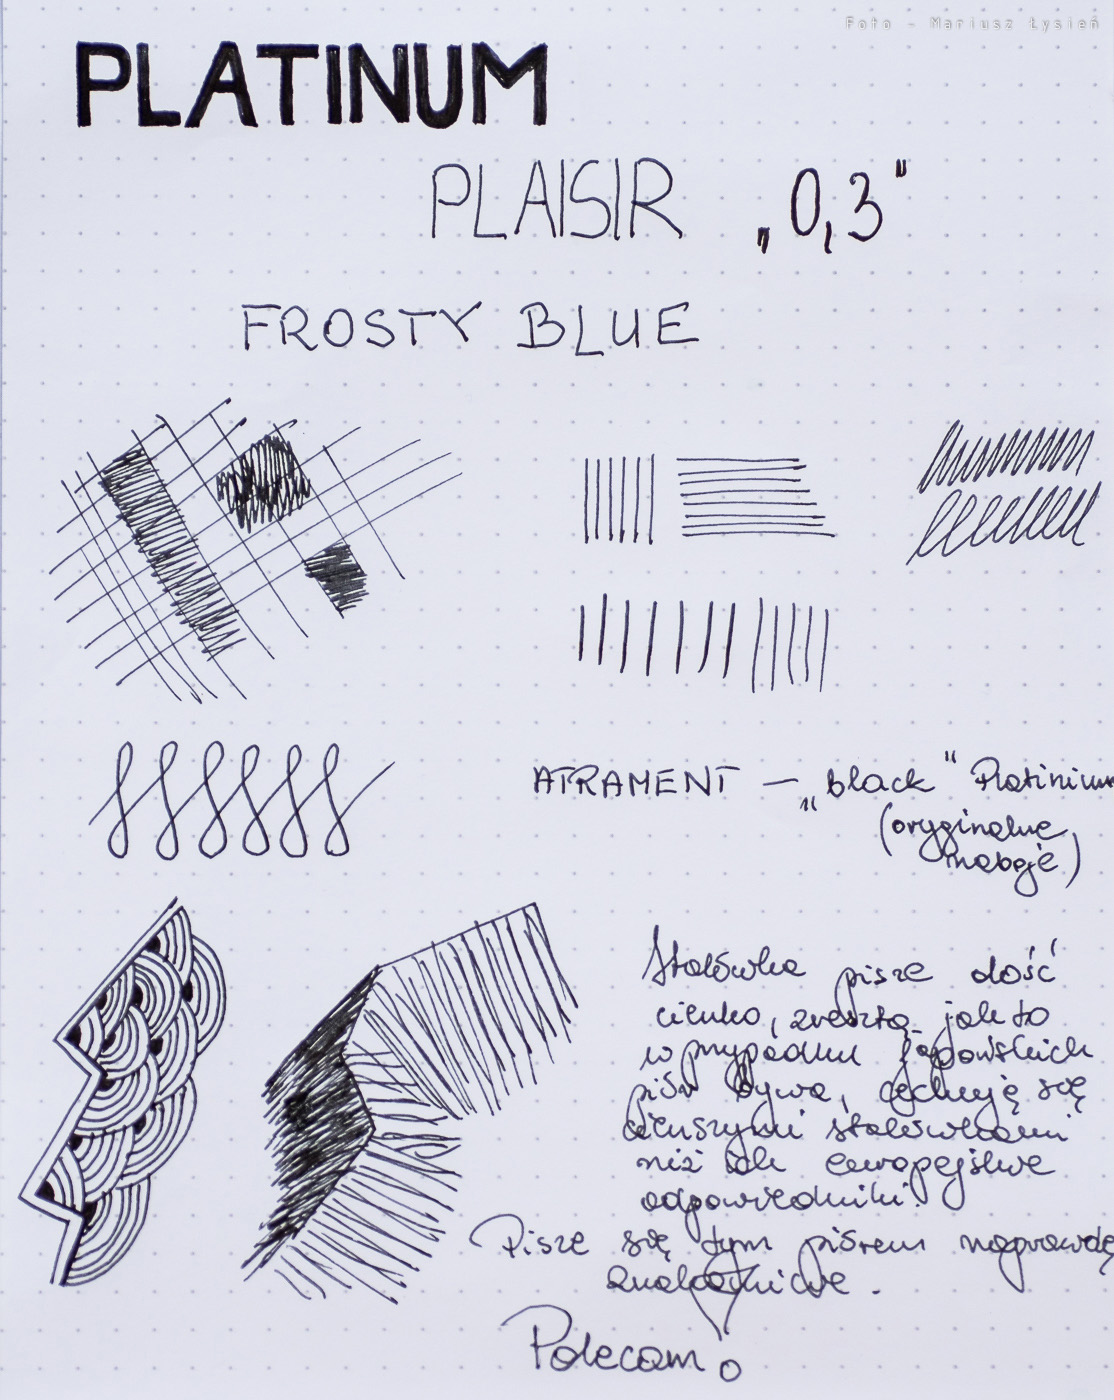 Foto - Mariusz Łysień
PLATINUM
PLAISIR „0,3"
FROSTY BLUE
ATRAMENT – „black" Platinium
(oryginalne
naboje)
Stalówka pisze dość
cienko, zresztą jak to
w przypadku japońskich
piór bywa, cechują się
cieńszymi stalówkami
niż ich europejskie
odpowiedniki.
Pisze się tym piórem naprawdę
znakomicie.
Polecam!